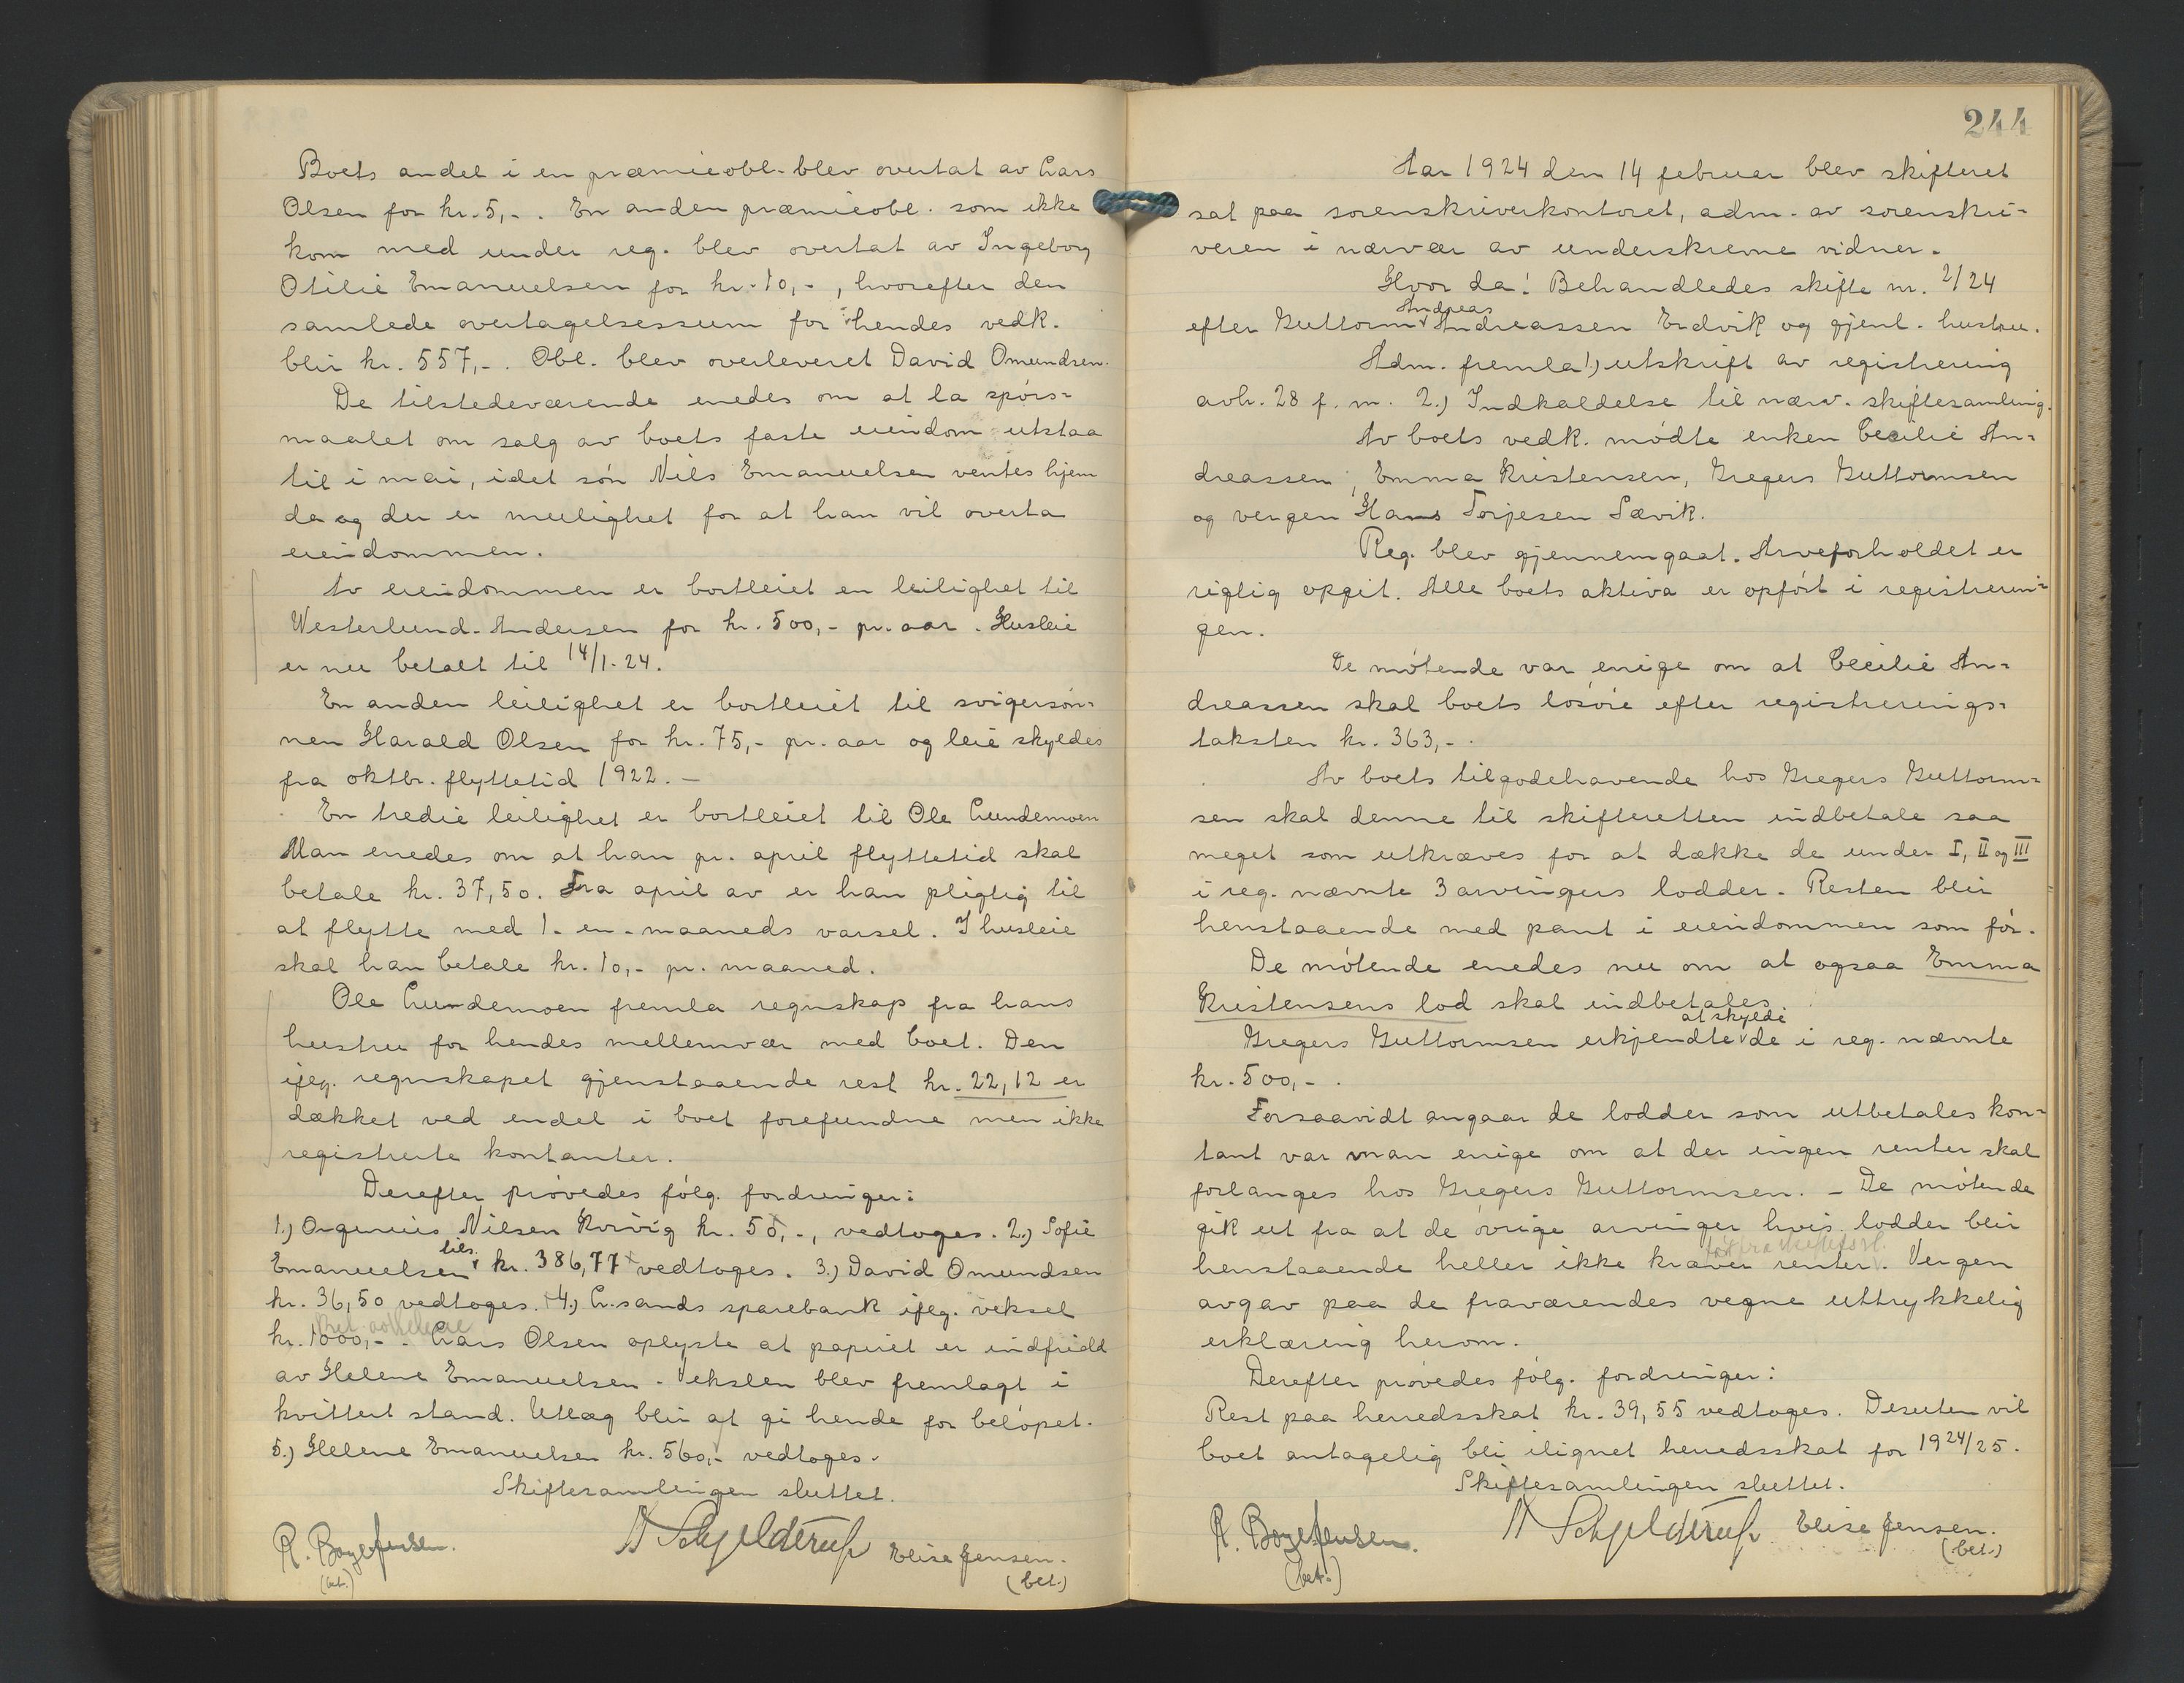 Boets andel i en præmieobl. blev overtat av Lars
Olsen for kr. 5,-. En anden præmieobl. som ikke
kom med under reg. blev overtat av Ingeborg
Otilie Emanuelsen for kr. 10,-, hvorefter den
samlede overtagelsessum for hendes vedk.
blir kr. 557,-. Obl. blev overleveret David Omundsen.
De tilstedeværende enedes om at la spørs=
maalet om salg av boets faste eiendom utstaa
til i mai, idet søn Nils Emanuelsen ventes hjem
da og der er mulighet for at han vil overta
eiendommen.
Av eiendommen er bortleiet en leilighet til
Westerlund-Andersen for kr. 500,- pr. aar. Husleie
er nu betalt til 14/1-24.
En anden leilighet er bortleiet til svigersøn=
nen Harald Olsen for kr. 75,- pr. aar og leie skyldes
fra oktbr. flyttetid 1922. -
En tredie leilighet er bortleiet til Ole Lundemoen
Man enedes om at han pr. april flyttetid skal
betale kr. 37,50. Fra april av er han pligtig til
at flytte med 1- en - maaneds varsel. I husleie
skal han betale kr. 10,- pr. maaned.
Ole Lundemoen fremla regnskap fra hans
hustru for hendes mellemvær med boet. Den
ifølg. regnskapet gjenstaaende rest kr. 22,12 er
dækket ved endel i boet forefundne men ikke
registrerte kontanter.
Derefter prøvedes følg. fordringer:
1.) Nilsen kr. 50,-, vedtoges. 2.) Sofie
tils.
Emanuelsen kr. 386,77 vedtoges. 3.) David Omundsen
kr. 36,50 vedtoges. 4.) Kr.sands sparebank ifølg. veksel
kr. 1000,-. Lars Olsen oplyste at papiret er indfridd
av Helene Emanuelsen. Vekslen blev fremlagt i
kvittert stand. Utlæg blir at gi hende for beløpet.
5.) Helene Emanuelsen kr. 560,- vedtoges.
Skiftesamlingen sluttet.
R. Boye Jensen. Schjelderup Elise Jensen.
(bet.) (bet.)
244
Aar 1924 den 14 februar blev skifteret
sat paa sorenskriverkontoret, adm. av sorenskri=
veren i nærvær av underskrevne vidner.
Hvor da: Behandledes skifte nr. 2/24
Andreas
efter Guttorm Andreassen Erdvik og gjenl. hustru.
Adm. fremla 1.) utskrift av registrering
avh. 28 f. m. 2.) Indkaldelse til nærv. skiftesamling.
Av boets vedk. mødte enken Cecilie An=
dreassen, Emma Kristensen, Gregers Guttormsen
og vergen Hans Torjesen Sævik.
Reg. blev gjennemgaat. Arveforholdet er
rigtig opgit. Alle boets aktiva er opført i registrerin=
gen.
De møtende var enige om at Cecilie An=
dreassen skal boets løsøre efter registrerings=
taksten kr. 363,-.
Av boets tilgodehavende hos Gregers Guttorm=
sen skal denne til skifteretten indbetale saa
meget som utkræves for at dække de under I, II og III
i reg. nævnte 3 arvingers lodder. Resten blir
henstaaende med pant i eiendommen som før.
De møtende enedes nu om at ogsaa Emma
Kristensens lod skal indbetales.
at skylde
Gregers Guttormsen erkjendte de i reg. nævnte
kr. 500,-.
Forsaavidt angaar de lodder som utbetales kon=
tant var man enige om at der ingen renter skal
forlanges hos Gregers Guttormsen. - De møtende
gik ut fra at de øvrige arvinger hvis lodder blir
henstaaende heller ikke kræver renter. Vergen
avgav paa de fraværendes vegne uttrykkelig
erklæring herom.
Derefter prøvedes følg. fordringer:
Rest paa herredsskat kr. 39,55 vedtoges. Desuten vil
boet antagelig bli ilignet herredsskat for 1924/25.
Skiftesamlingen sluttet.
R. Boye Jensen. Schjelderup Elise Jensen.
(bet.) (bet.)